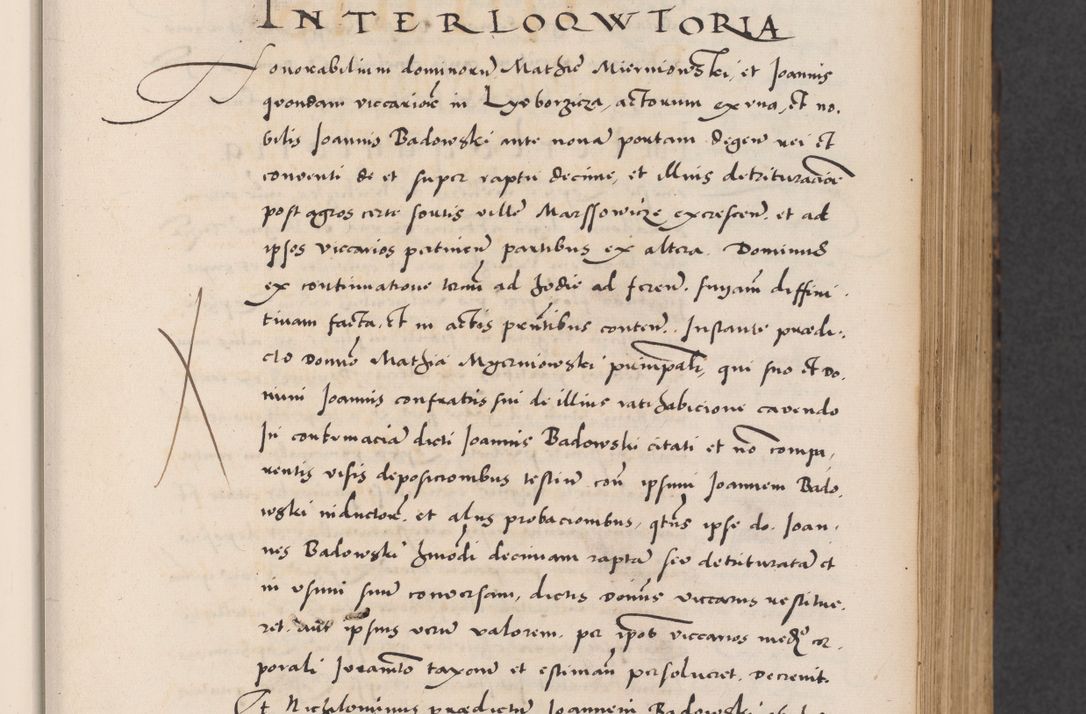 INTERLOQWTORIA
Honorabilium dominorũ Mathie Mierniowski, et Joannis
quondam viccariorũ in Lyeborzicza, actorum ex vna, et no,
bilis Joannis Badowski ante nouã portam degeñ rei et
conuenti de et super raptu decime, et illius detrituracioẽ
post agros certe sortis ville Marssowicze excresceñ. et ad
ipsos viccarios pertineñ partibus ex altera. Dominus
ex continuatione termĩ ad hodie ad fereñ. sniam diffini,
tiuam facta, et in actis pñtibus conteñ. Instante prædi,
cto Domño Mathia Myerniowski principali, qui suo et Do,
mini Joannis confratris sui de illius ratihabicione cavendo
In contumaciã dicti Joannis Badowski citati et nõ compa,
rentis visis deposicionibus testiũ coñ ipsum Joannem Bado,
wski inductorũ. et alijs probacionibus, qtũs ipse do. Joan,
nes Badowski hmõdi decimam raptã seu detrituratã et
in vsum suũ conuersam, dictis Domĩs viccarijs restitue,
ret. aut ipsius verũ valorem. per ipõs viccarios medᵒ cor,
porali Juramẽto taxatũ et estimatũ persolueret. Decreuit.
Et Nichilominus prædictũ Joannem Badowski